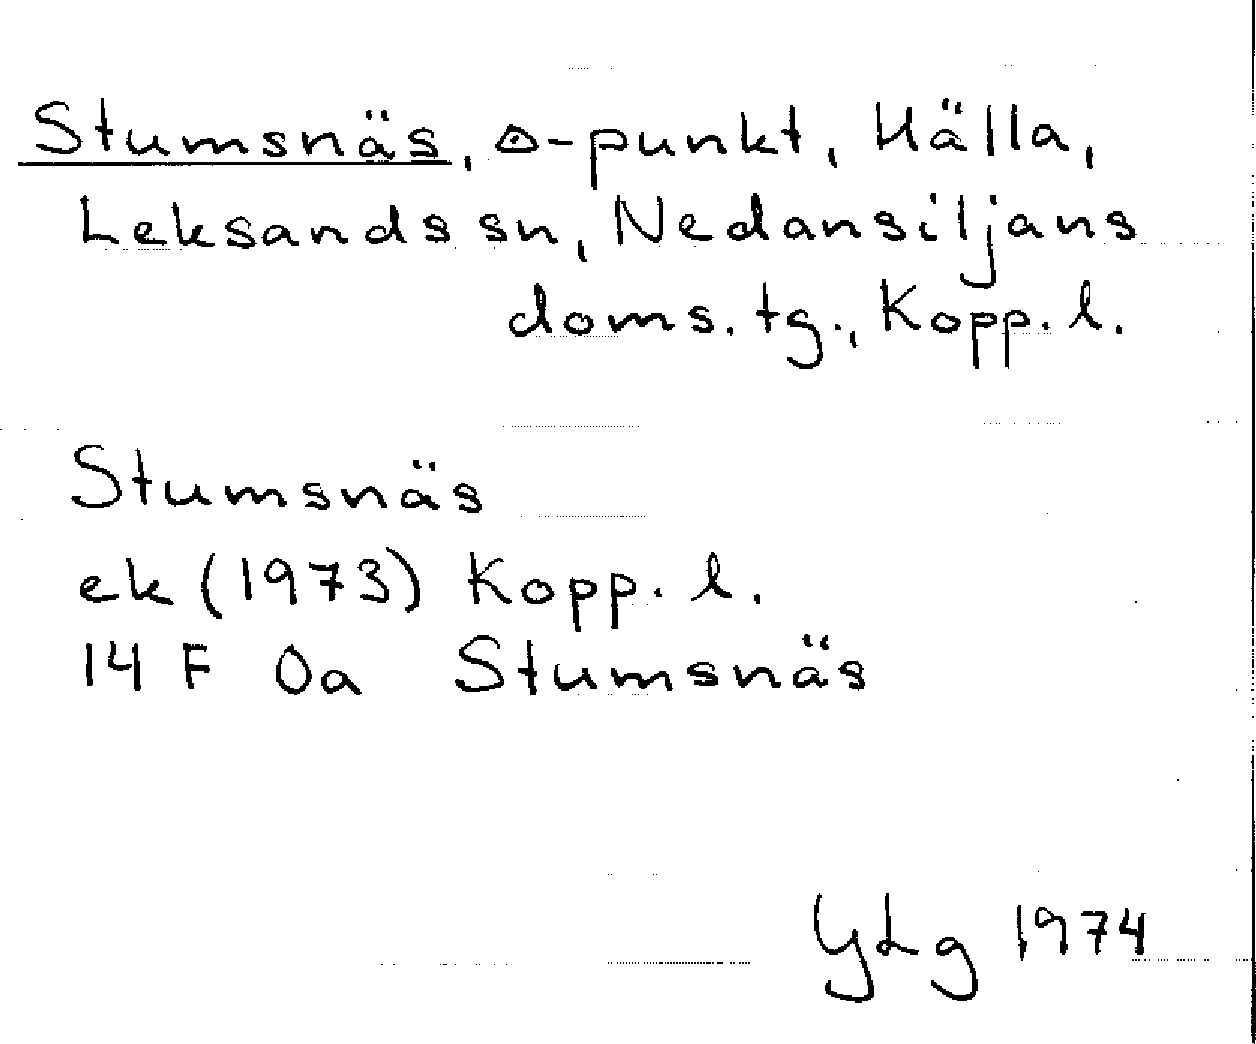 Stumsnäs, △-punkt, Hälla,
Leksands sn, Nedansiljans
doms. tg., Kopp. l.
Stumsnäs
ek (1973) Kopp. l.
14 F 0a Stumsnäs
YLg 1974